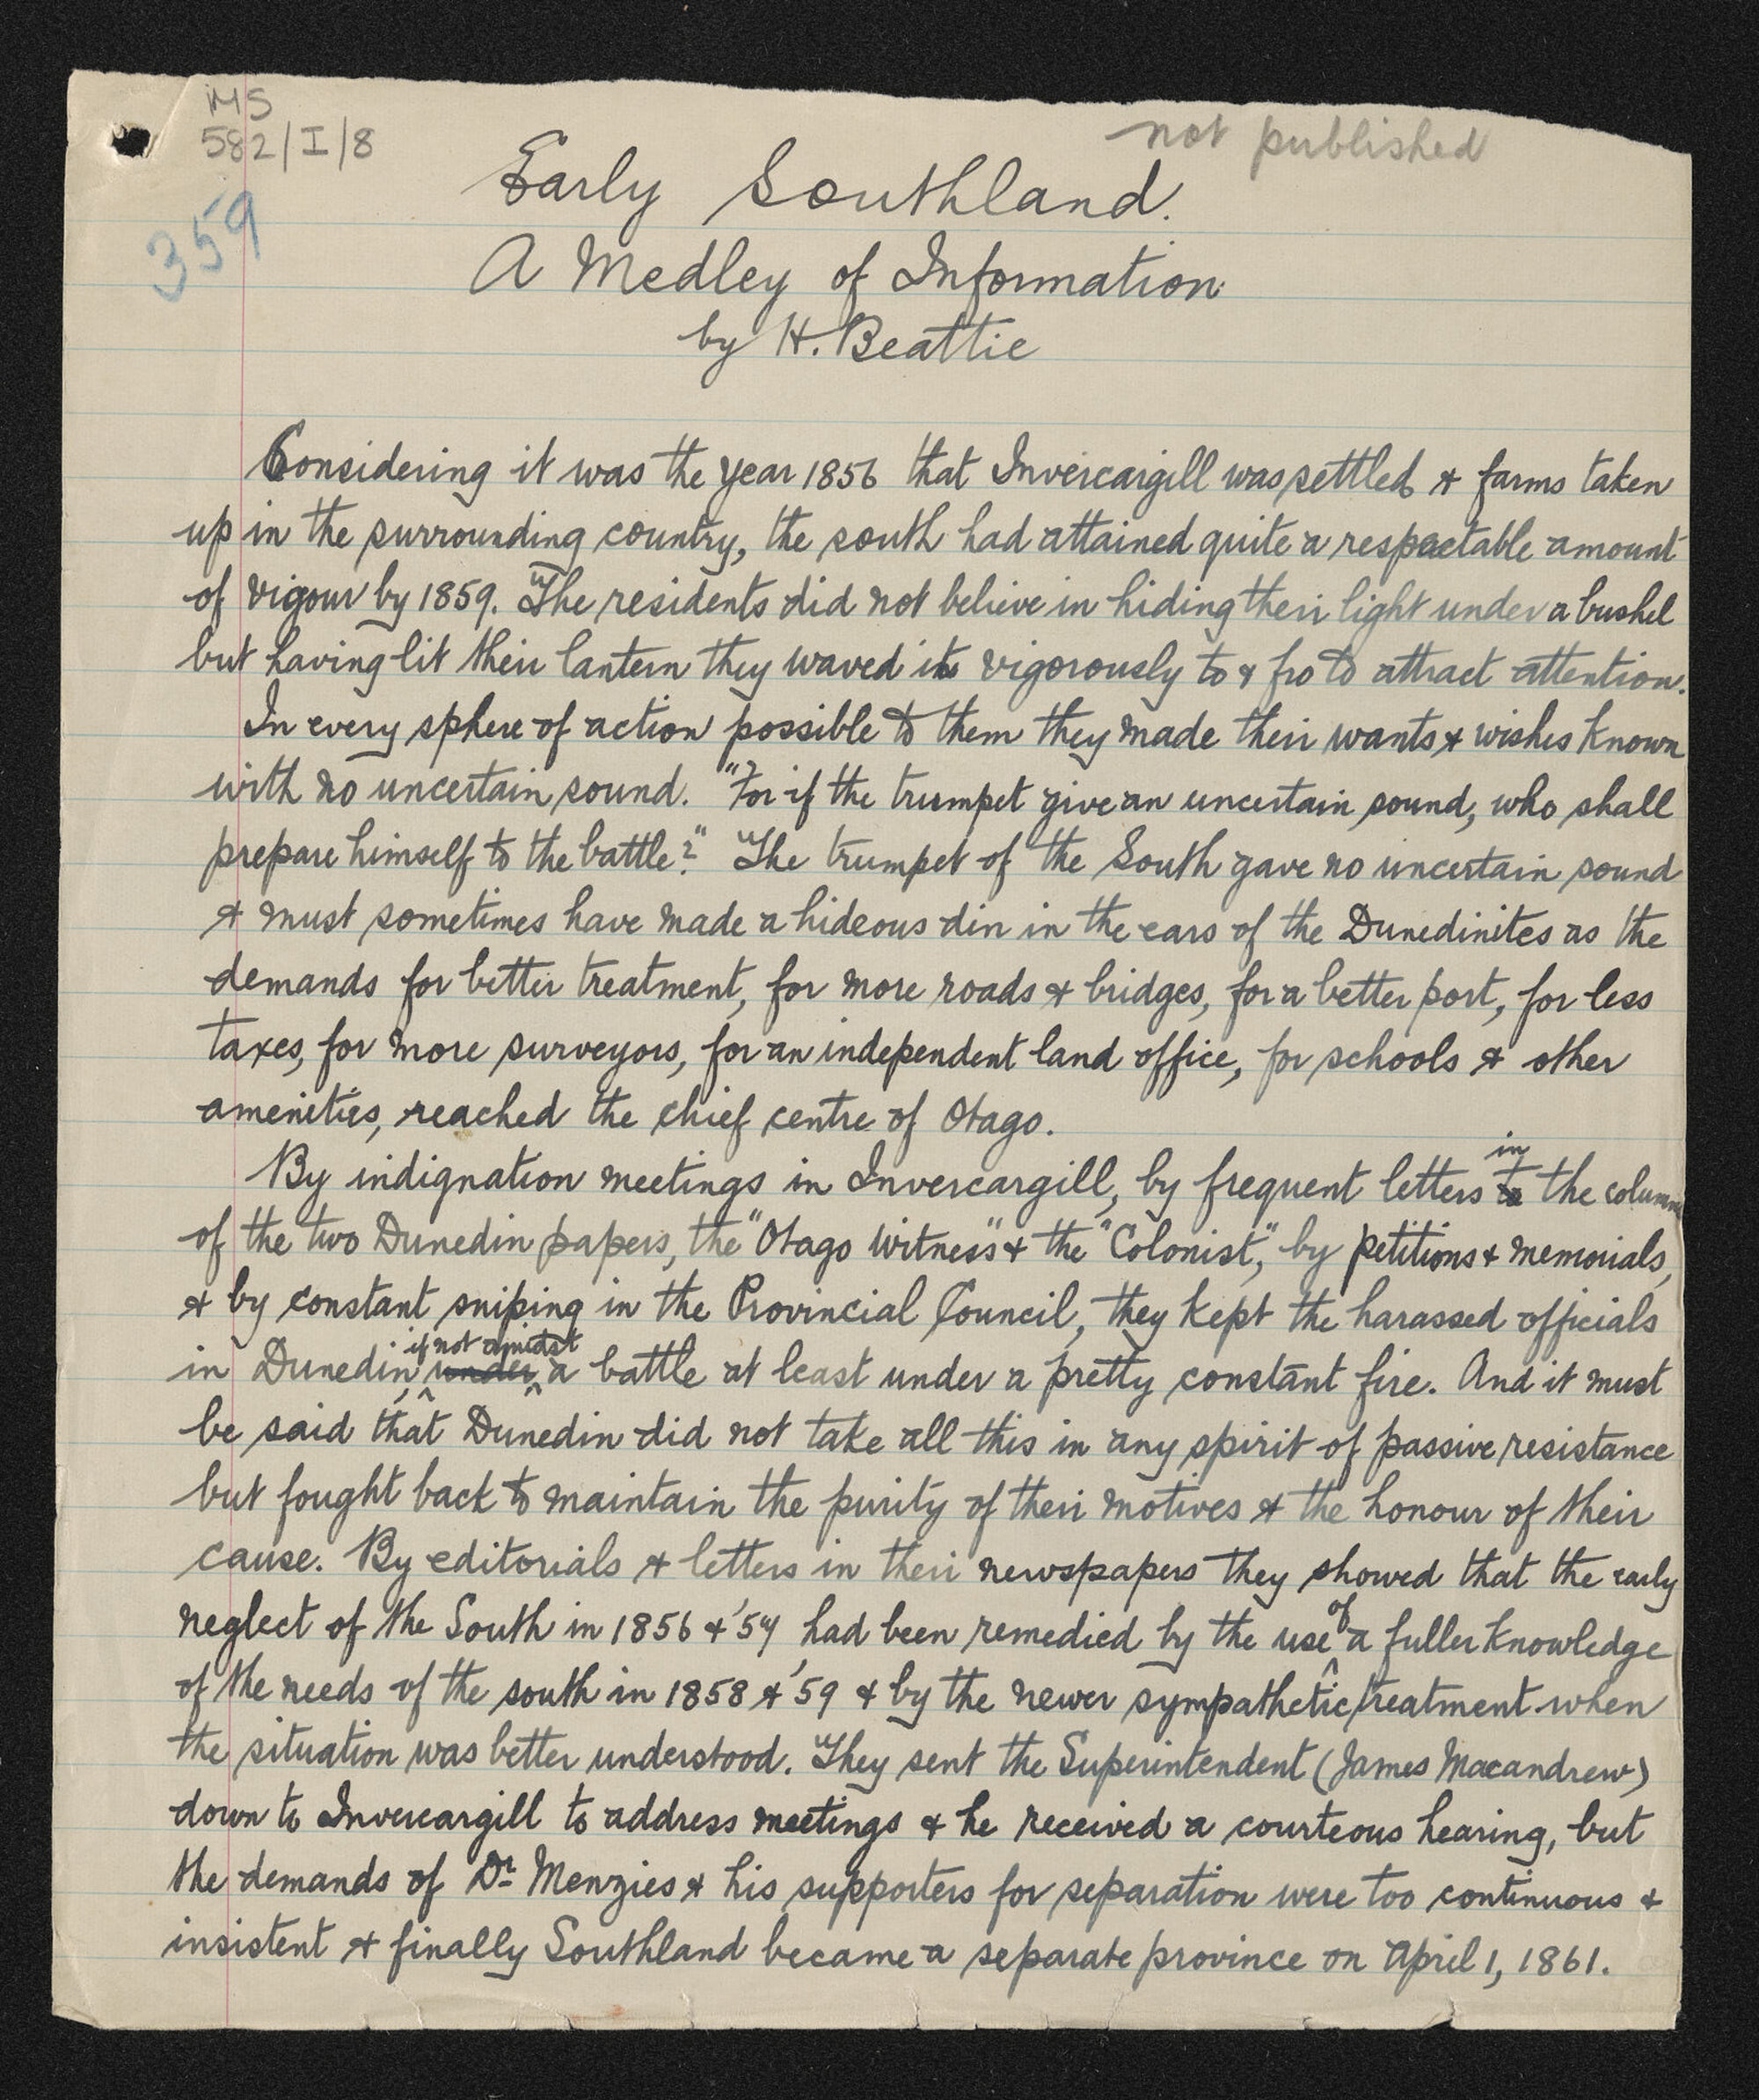 MS
582/I/8
not published
359
Early Southland.
A Medley of Information
by H. Beattie
Considering it was the year 1856 that Invercargill was settled & farms taken
up in the surrounding country, the south had attained quite a respectable amount
of vigour by 1859. The residents did not believe in hiding their light under a bushel
but having lit their lantern they waved it vigorously to & fro to attract attention.
In every sphere of action possible to them they made their wants & wishes known
with no uncertain sound. "For if the trumpet give an uncertain sound, who shall
prepare himself to the battle?" The trumpet of the South gave no uncertain sound
& must sometimes have made a hideous din in the ears of the Dunedinites as the
demands for better treatment, for more roads & bridges, for a better port, for less
taxes, for more surveyors, for an independent land office, for schools & other
amenities, reached the chief centre of Otago.
By indignation meetings in Invercargill, by frequent letters in the columns
of the two Dunedin papers, the "Otago Witness" & the "Colonist," by petitions & memorials,
& by constant sniping in the Provincial Council, they kept the harassed officials
in Dunedin, if not amidst under a battle at least under a pretty constant fire. And it must
be said that Dunedin did not take all this in any spirit of passive resistance
but fought back to maintain the purity of their motives & the honour of their
cause. By editorials & letters in their newspapers they showed that the early
neglect of the South in 1856 & '57 had been remedied by the use of a fuller knowledge
of the needs of the south in 1858 & '59 & by the newer sympathetic treatment when
the situation was better understood. They sent the Superintendent (James Macandrew)
down to Invercargill to address meetings & he received a courteous hearing, but
the demands of Dr Menzies & his supporters for separation were too continuous &
insistent & finally Southland became a separate province on April 1, 1861.